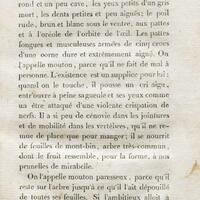 rond et un peu cave, les yeux petits d'un gris
mort, les dents petites et peu aiguës; le poil
rude, brun et blanc sous le ventre, aux pattes
et à l'oréole de l'orbite de l'œil. Les pattes
longues et musculeuses armées de cinq crocs
d'une corne dure et extrêmement aigue. On
l'appelle mouton, parce qu'il ne fait de mal à
personne. L'existence est un supplice pour lui;
quand on le touche, il pousse un cri aigu,
entr'ouvre à peine sa gueule et ses yeux comme
un être attaqué d'une violente crispation de
nerfs. Il a si peu de cénovie dans les jointures
et de mobilité dans les vertèbres, qu'il ne re-
mue de place que pour manger; il se nourrit
de feuilles de mont-bin, arbre très-commun,
dont le fruit ressemble, pour la forme, à nos
prunelles de mirabelle.
On l'appelle mouton paresseux, parce qu'il
reste sur l'arbre jusqu'à ce qu'il l'ait dépouillé
de toutes ses feuilles. Si l'ambitieux alloit à